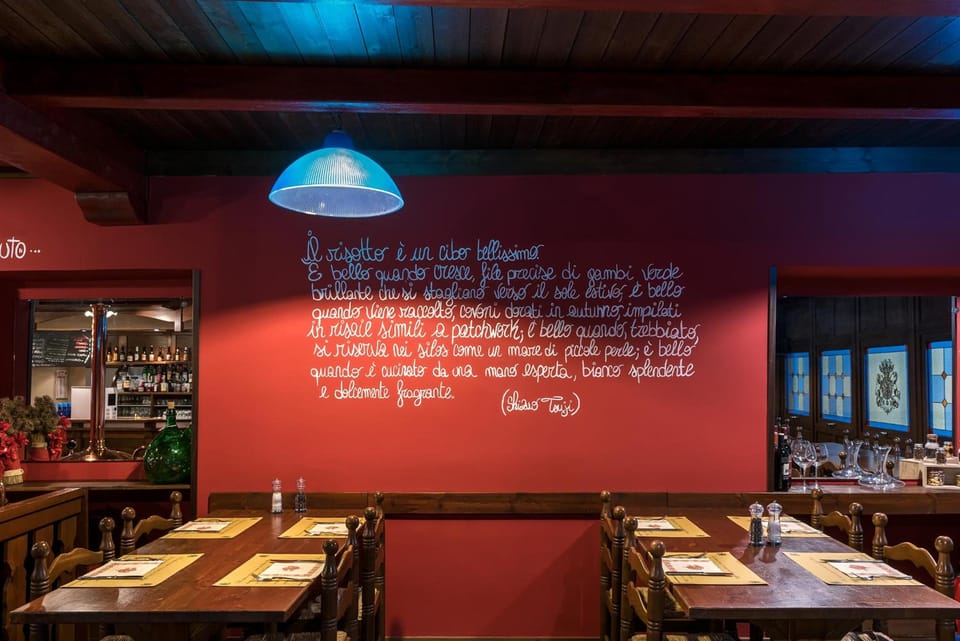 uto...
Il risotto è un cibo bellissimo.
È bello quando cresce, file precise di gambi verde
brillante che si stagliano verso il sole estivo; è bello
quando viene raccolto, covoni dorati in autunno impilati
in risaie simili a patchwork; è bello quando, trebbiato,
si riserva nei silos come un mare di piccole perle; è bello
quando è cucinato da una mano esperta, bianco splendente
e dolcemente fragrante.
(Shizuo Tsuji)